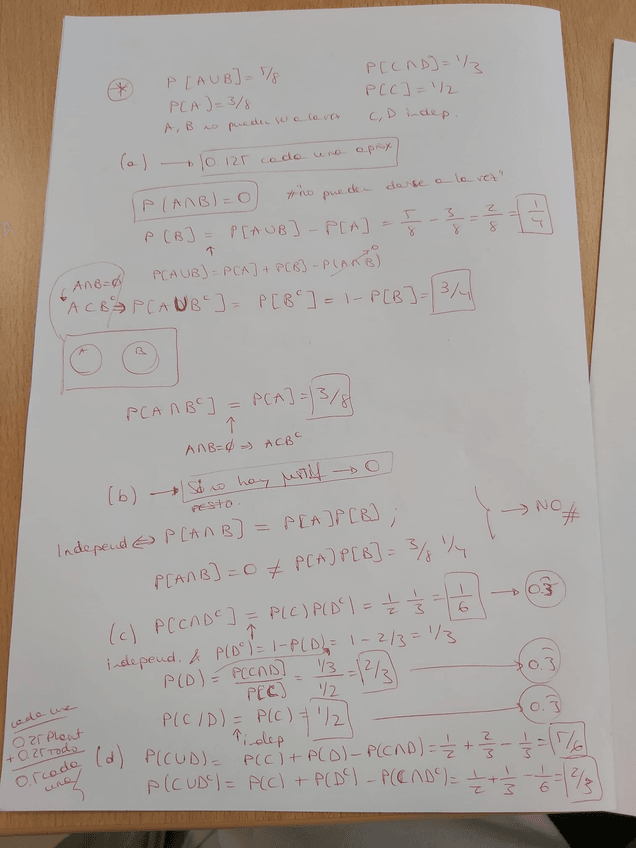 * P[A∪B] = 5/8 P[C∩D] = 1/3
P[A] = 3/8 P[C] = 1/2
A, B no pueden ser a la vez C, D indep.
(a) → 0.125 cada una aprox
P[A∩B] = 0 # "no pueden darse a la vez"
P[B] = P[A∪B] - P[A] = 5/8 - 3/8 = 2/8 = 1/4
↑
P[A∪B] = P[A] + P[B] - P[A∩B] → 0
A∩B=∅
A⊂Bᶜ ⇒ P[A∪Bᶜ] = P[Bᶜ] = 1 - P[B] = 3/4
A B
P[A∩Bᶜ] = P[A] = 3/8
↑
A∩B=∅ ⇒ A⊂Bᶜ
(b) → Si no hay justif → 0
resto.
Independ ⇔ P[A∩B] = P[A]P[B] ;
P[A∩B] = 0 ≠ P[A]P[B] = 3/8 1/4 } → NO #
(c) P[C∩Dᶜ] = P(C)P(Dᶜ) = 1/2 1/3 = 1/6 → 0.3̄
↑
independ. & P(Dᶜ) = 1-P(D) = 1 - 2/3 = 1/3
P(D) = P(C∩D)/P[C] = 1/3 / 1/2 = 2/3 → 0.3̄
P(C/D) = P(C) = 1/2 → 0.3̄
↑ indep
cada una
0.25 Plant
+ 0.25 todo
0.5 cada
una
(d) P(C∪D) = P(C) + P(D) - P(C∩D) = 1/2 + 2/3 - 1/3 = 5/6
P(C∪Dᶜ) = P(C) + P(Dᶜ) - P(C∩Dᶜ) = 1/2 + 1/3 - 1/6 = 2/3